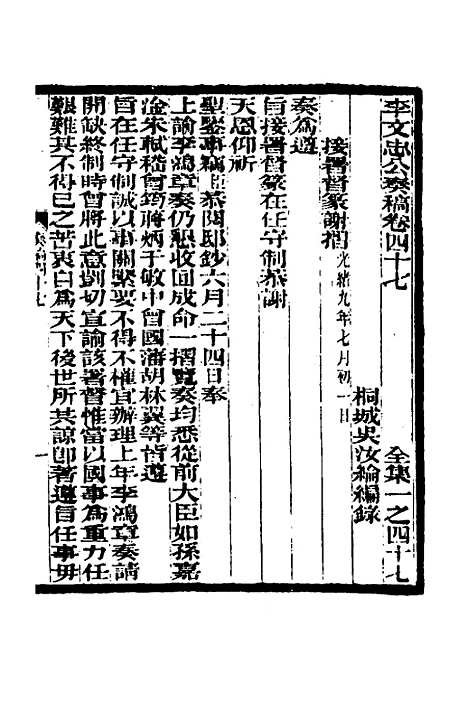 李文忠公奏稿卷四十七 全集一之四十七
桐城吳汝綸編錄
接署督篆謝摺 光緒九年七月初一日
奏爲遵
旨接署督篆在任守制恭謝
天恩仰祈
聖鑒事竊臣恭閱邸鈔六月二十四日奉
上諭李鴻章奏仍懇收回成命一摺覽奏均悉從前大臣如孫嘉
淦朱軾嵇曾筠蔣炳于敏中曾國藩胡林翼等皆遵
旨在任守制誠以事關緊要不得不權宜辦理上年李鴻章奏請
開缺終制時曾將此意剴切宣諭該署督惟當以國事爲重力任
艱難其不得已之苦衷白爲天下後世所共諒卽著遵旨任事毋
一